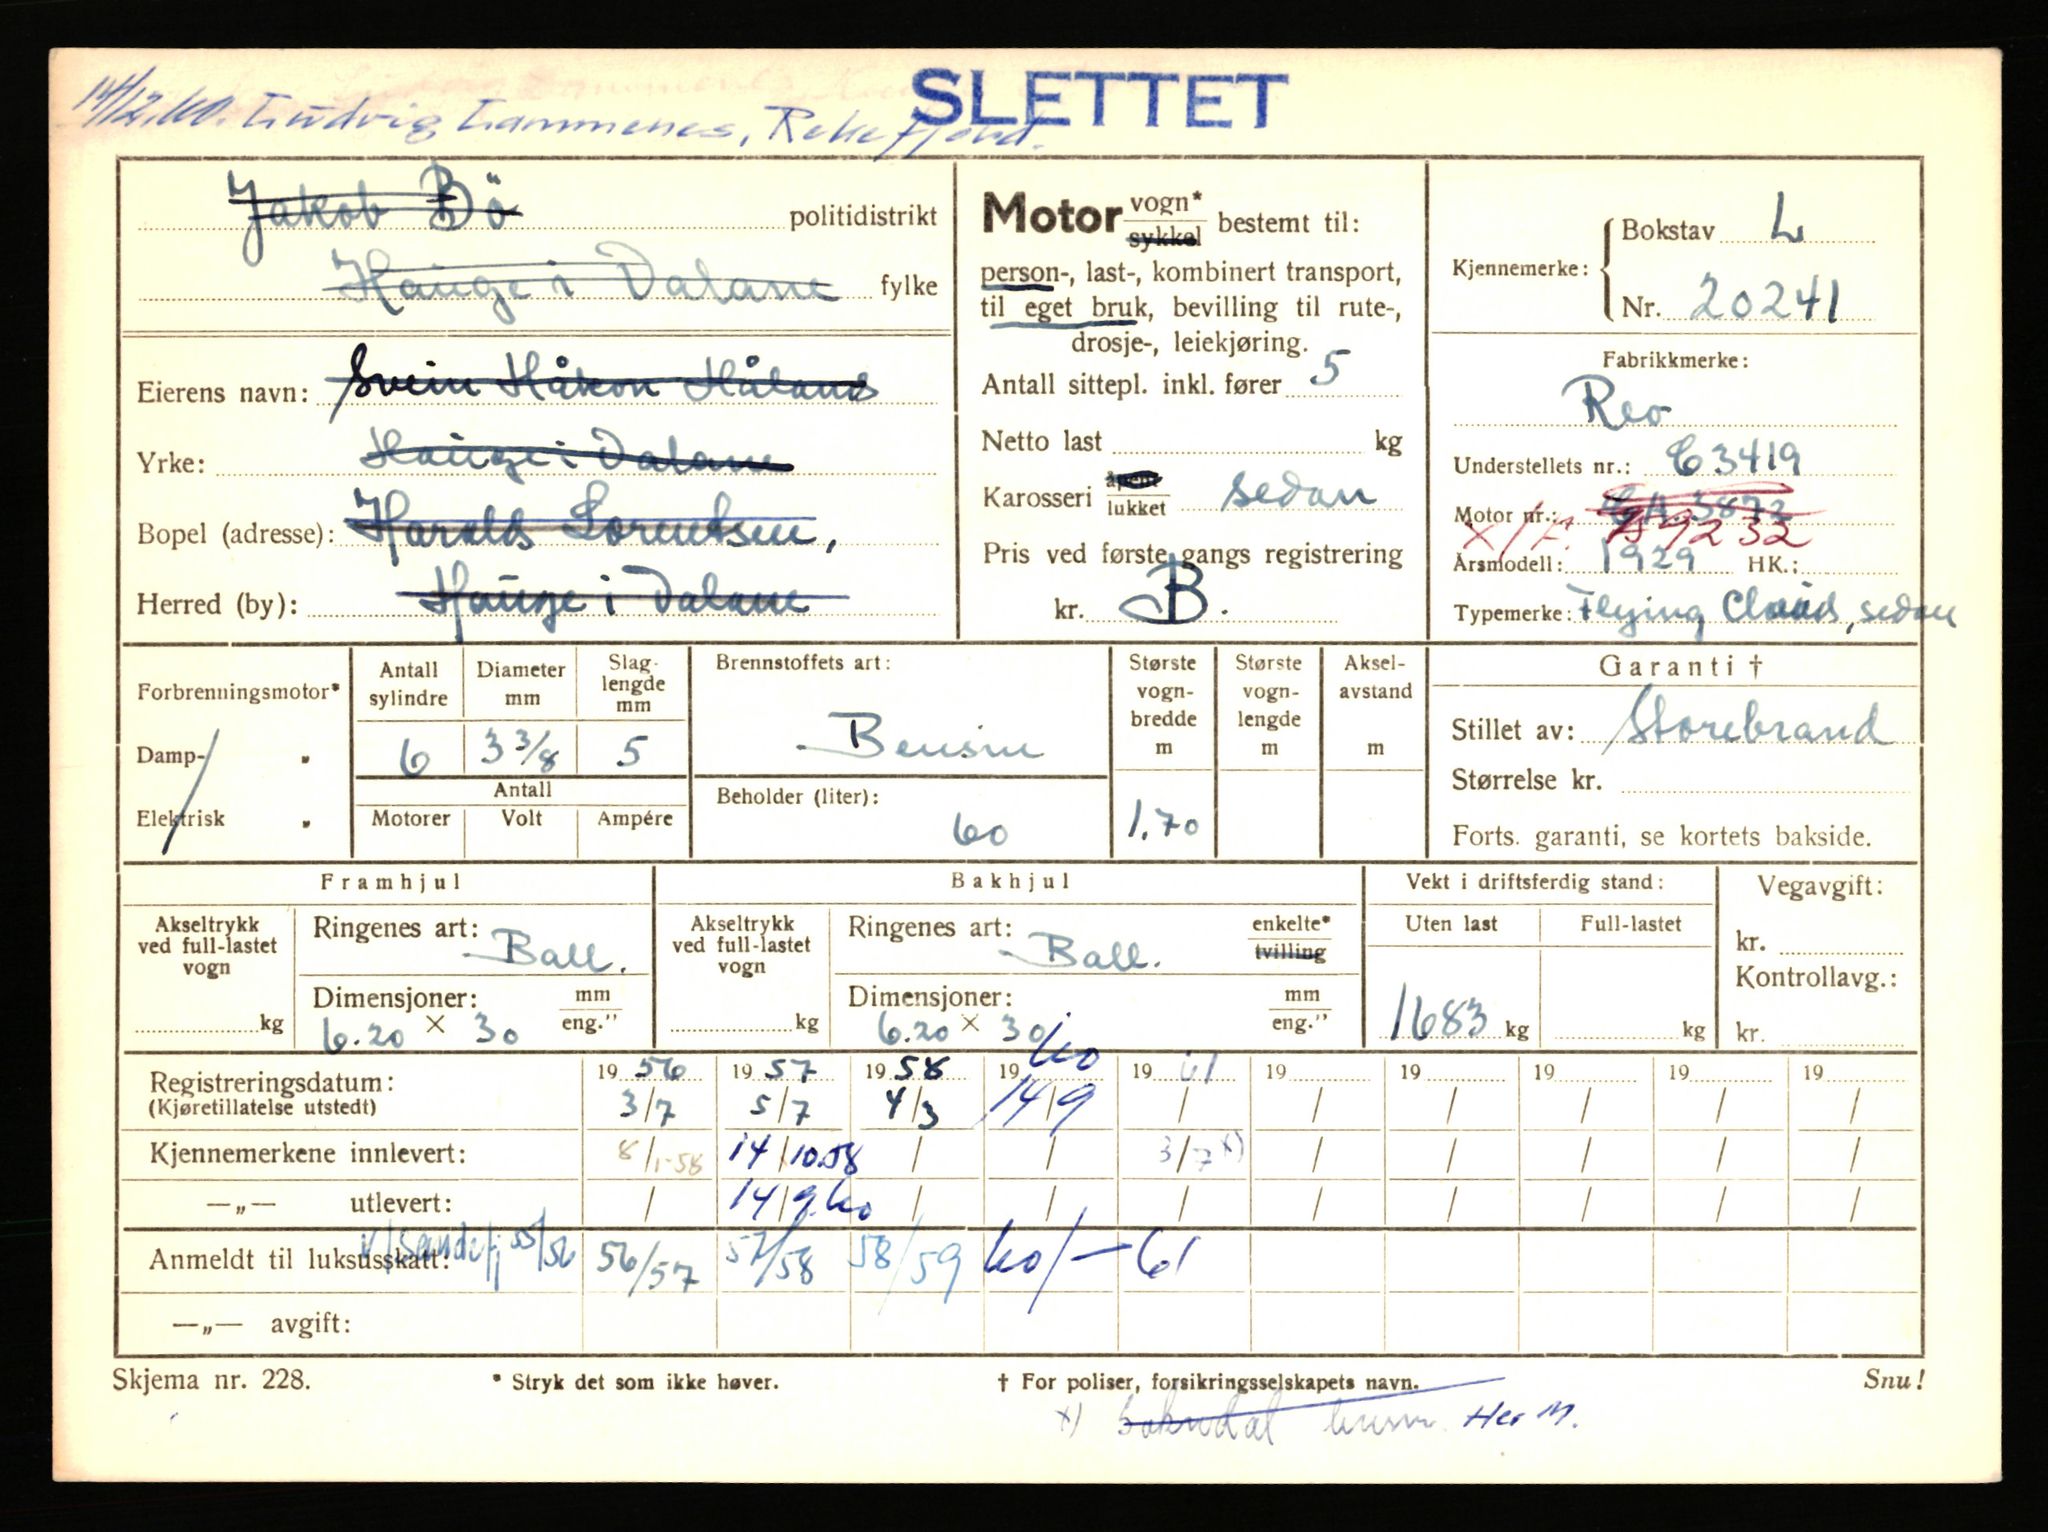 SLETTET
14/12.60. Ludvig Lammenes, Rekefjord.
Jakob Bö politidistrikt
Hauge i Dalane fylke
Eierens navn: Svein Håkon Håland
Yrke: Hauge i Dalane
Bopel (adresse): Harald Lorentsen,
Herred (by): Hauge i Dalane
Motor vogn* sykkel bestemt til:
person-, last-, kombinert transport,
til eget bruk, bevilling til rute-,
drosje-, leiekjøring.
Antall sittepl. inkl. fører 5
Netto last kg
Karosseri åpent lukket sedan
Pris ved første gangs registrering
kr. B.
Kjennemerke: Bokstav L
Nr. 20241
Fabrikkmerke:
Reo
Understellets nr.: C 3419
Motor nr.:
x/F. 9232
Årsmodell: 1929 HK.:
Typemerke: Flying Cloud, sedan
Forbrenningsmotor*
Damp- "
Elektrisk "
Antall sylindre Diameter mm Slag-lengde mm
6 3 3/8 5
Antall
Motorer Volt Ampére
Brennstoffets art:
Bensin
Beholder (liter):
60
Største vogn-bredde m Største vogn-lengde m Aksel-avstand m
1.70
Garanti †
Stillet av: Storebrand
Størrelse kr.
Forts. garanti, se kortets bakside.
Framhjul
Akseltrykk ved full-lastet vogn
kg
Ringenes art: Ball.
Dimensjoner: mm eng."
6.20 × 30
Bakhjul
Akseltrykk ved full-lastet vogn
kg
Ringenes art: Ball. enkelte* tvilling
Dimensjoner: mm eng."
6.20 × 30
Vekt i driftsferdig stand:
Uten last Full-lastet
1683 kg kg
Vegavgift:
kr.
Kontrollavg.:
kr.
Registreringsdatum: 19 56 19 57 19 58 19 60 19 61 19 19 19 19 19
(Kjøretillatelse utstedt) 3/7 5/7 4/3 14/9 / / / / / /
Kjennemerkene innlevert: 8/1-58 14/10.58 / / 3/7 x) / / / / /
—„— utlevert: / 14/9.60 / / / / / / / /
Anmeldt til luksusskatt: v/Sandefj 55/56 56/57 57/58 58/59 60/—61
—„— avgift:
Skjema nr. 228. * Stryk det som ikke høver. † For poliser, forsikringsselskapets navn. Snu!
x) Sokndal Her M.